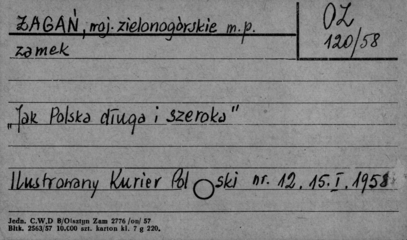 ŻAGAŃ, woj. zielonogórskie m.p.
OZ
120/58
zamek
„Jak Polska długa i szeroka"
Ilustrowany Kurier Polski nr. 12. 15.I.1958
Jedn. C.W.D 8/Olsztyn Zam 2776/on/57
Bltk. 2563/57 10.000 szt. karton kl. 7 g 220.